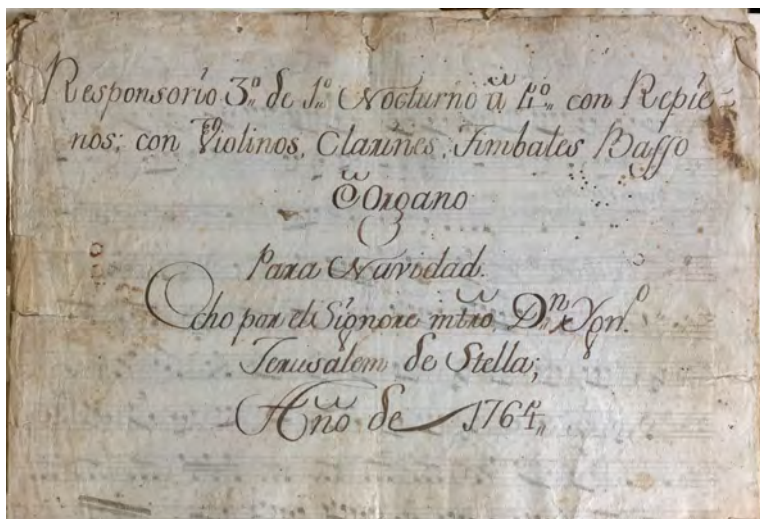 Responsorio 3º de 1º Nocturno â 4º con Repie
nos; con Violinos, Clarines, Timbales Basso
Organo
Para Navidad.
cho por el Signore mtrô Dn Ygnº
Jerusalem de Stella;
Año de 1764